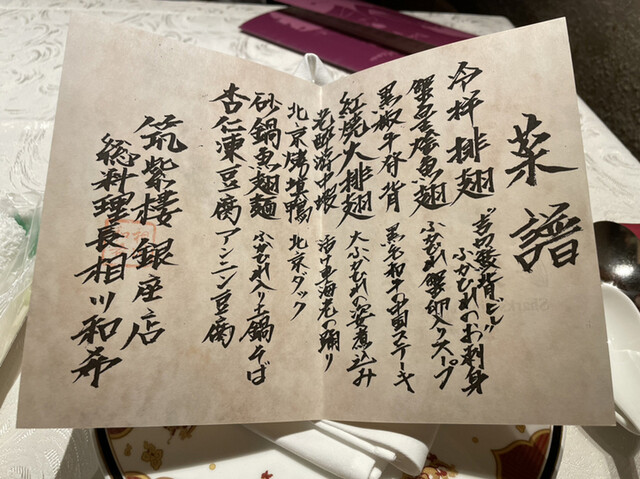 菜譜
冷拌排翅
ふかひれのお刺身
蟹黄燴魚翅
ふかひれ蟹卵入りスープ
黒椒牛脊背
黒毛和牛の中国ステーキ
紅焼大排翅
大ふかひれの姿煮込み
老酔游中蝦
活け車海老の踊り
北京烤填鴨
北京ダック
砂鍋魚翅麺
ふかひれ入り土鍋そば
杏仁凍豆腐
アンニン豆腐
筑紫楼銀座店
総料理長相川和希